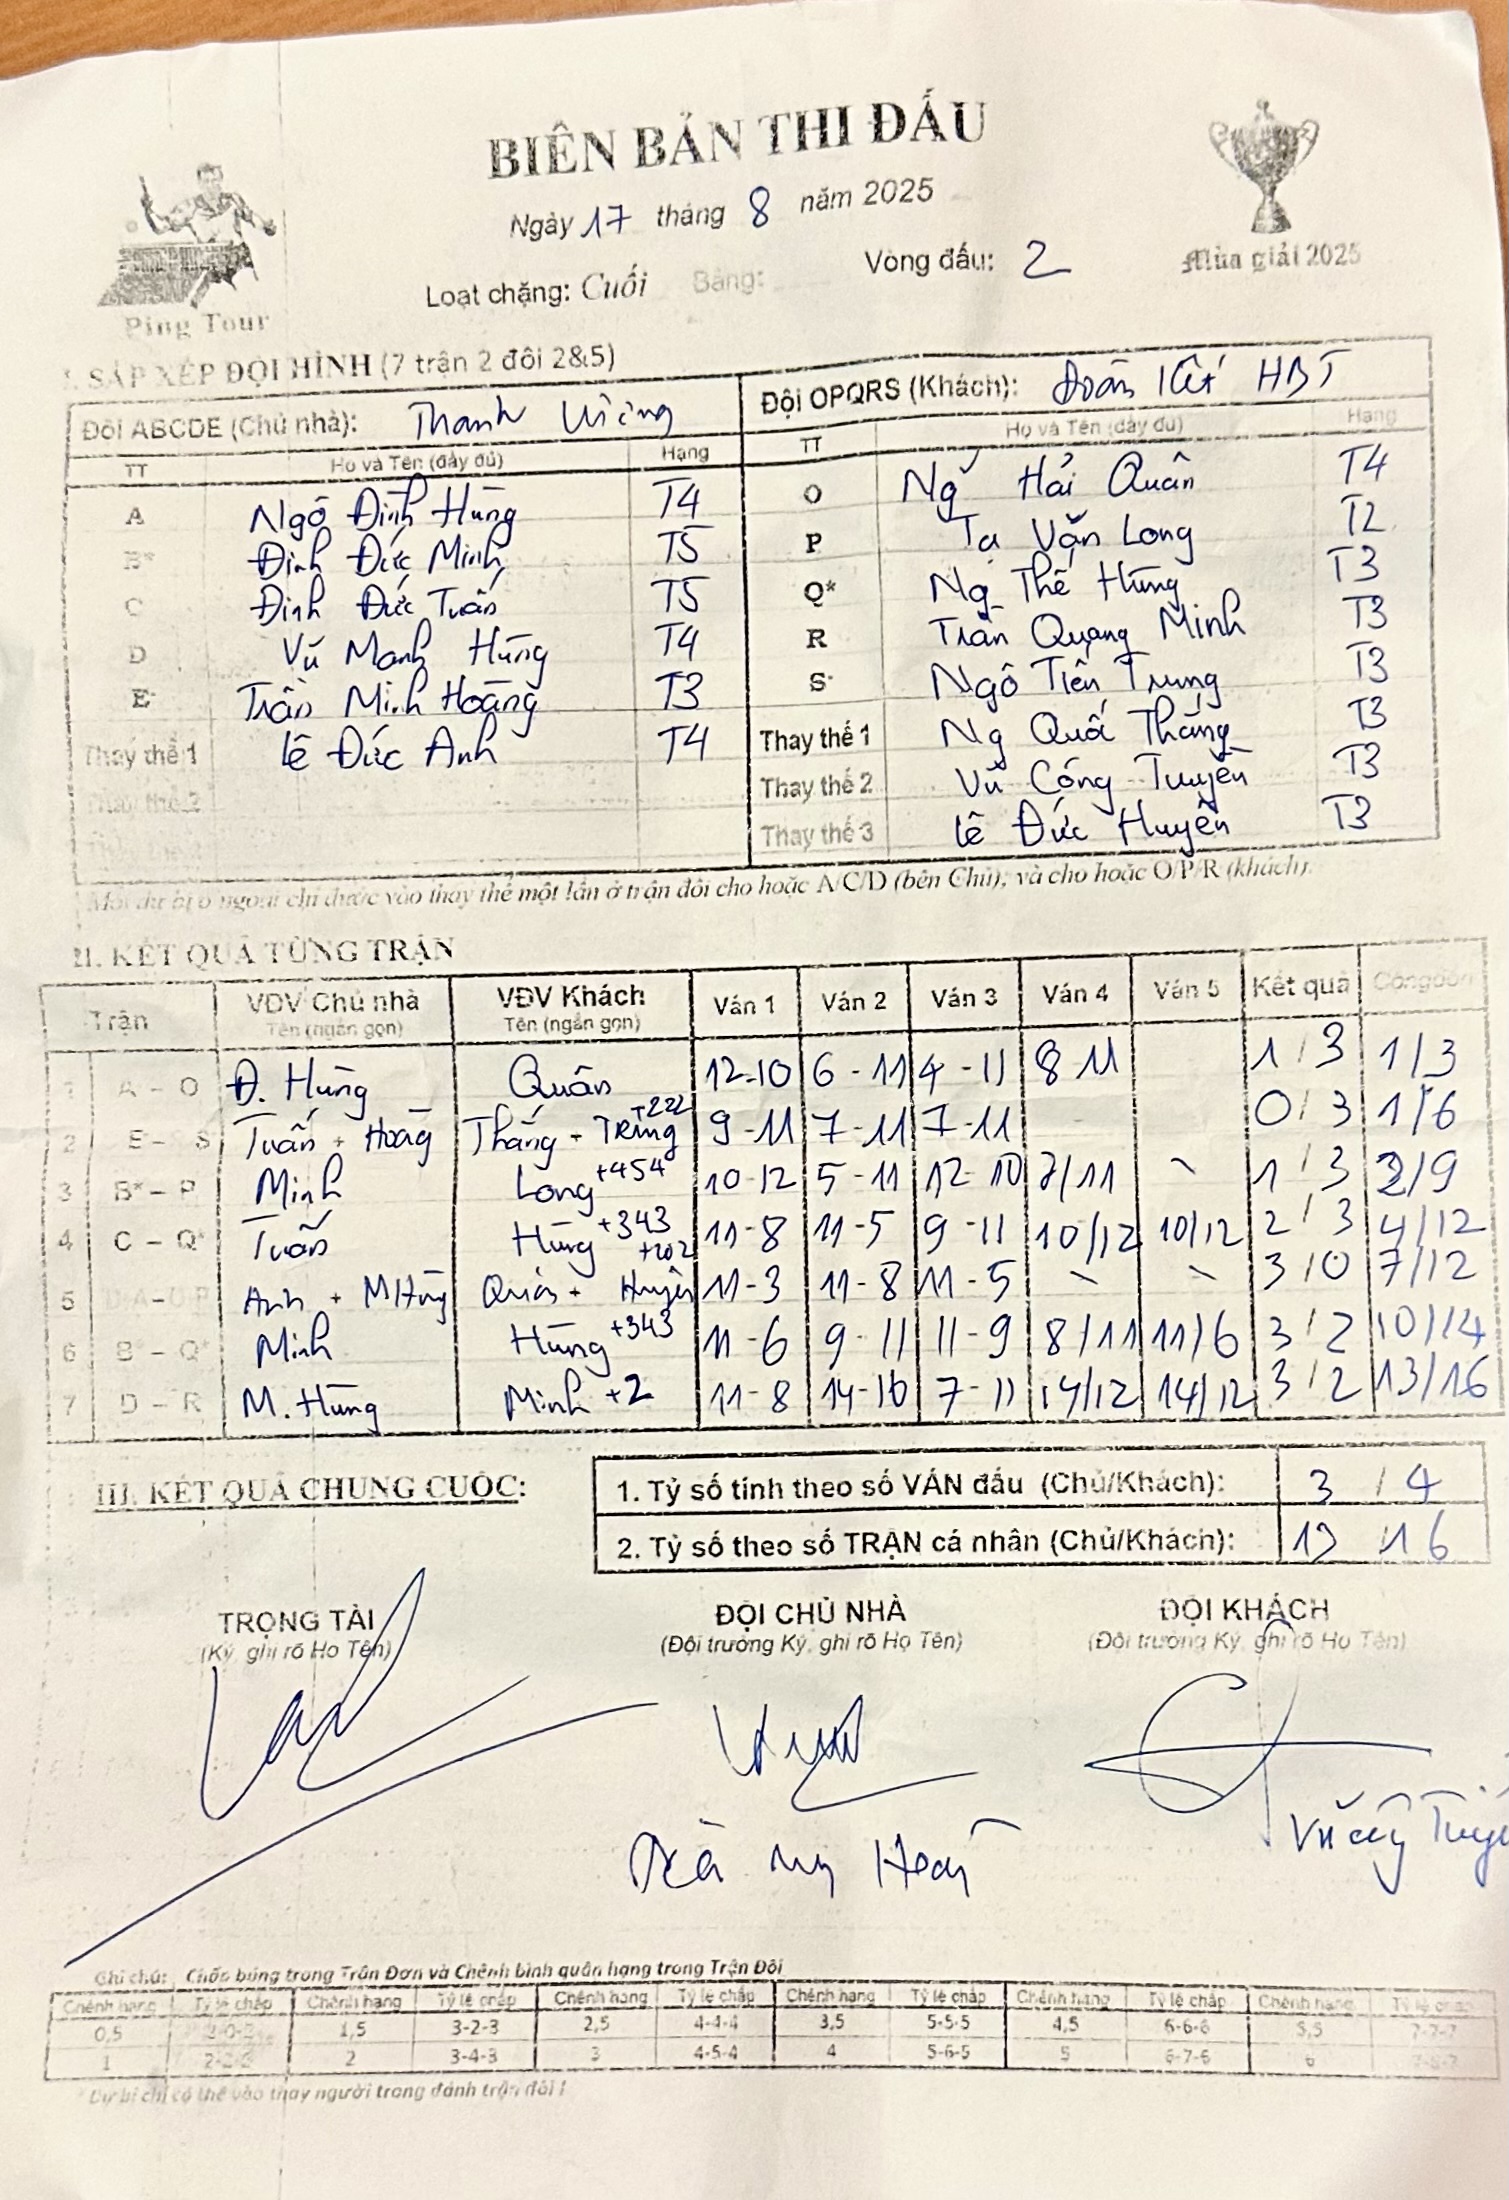 BIÊN BẢN THI ĐẤU
Ngày 17 tháng 8 năm 2025
Loạt chặng: Cuối Bảng: Vòng đấu: 2
Ping Tour
Mùa giải 2025
I. SẮP XẾP ĐỘI HÌNH (7 trận 2 đôi 2&5)
Đội ABCDE (Chủ nhà): Thanh Đội OPQRS (Khách): Đoàn Kết HBT
TT Họ và Tên (đầy đủ) Hạng TT Họ và Tên (đầy đủ) Hạng
A Ngô Đình Hùng T4 O Ng Hải Quân T4
B* Đinh Đức Minh T5 P Tạ Văn Long T2
C Đinh Đức Tuấn T5 Q* Ng Thế Hùng T3
D Vũ Mạnh Hùng T4 R Trần Quang Minh T3
E Trần Minh Hoàng T3 S Ngô Tiến Trung T3
Thay thế 1 Lê Đức Anh T4 Thay thế 1 Ng Quốc Thắng T3
Thay thế 2 Thay thế 2 Vũ Công Tuyền T3
Thay thế 3 Lê Đức Huyền T3
Mỗi dự bị ở ngoài chỉ được vào thay thế một lần ở trận đôi cho hoặc A/C/D (bên Chủ), và cho hoặc O/P/R (khách).
II. KẾT QUẢ TỪNG TRẬN
Trận VĐV Chủ nhà VĐV Khách Ván 1 Ván 2 Ván 3 Ván 4 Ván 5 Kết quả Cộng dồn
Tên (ngắn gọn) Tên (ngắn gọn)
1 A – O Đ. Hùng Quân 12-10 6-11 4-11 8 11 1/3 1/3
2 Tuấn + Hoàng Thắng + Trung +222 9-11 7-11 7-11 0/3 1/6
3 B* – P Minh Long +454 10-12 5-11 12-10 7/11 1/3 2/9
4 C – Q* Tuấn Hùng +343 11-8 11-5 9-11 10/12 10/12 2/3 4/12
5 Anh + M Hùng Quân + Huyền +202 11-3 11-8 11-5 3/0 7/12
6 B* – Q* Minh Hùng +343 11-6 9-11 11-9 8/11 11/6 3/2 10/14
7 D – R M. Hùng Minh +2 11-8 14-16 7-11 14/12 14/12 3/2 13/16
III. KẾT QUẢ CHUNG CUỘC:
1. Tỷ số tính theo số VÁN đấu (Chủ/Khách): 3 / 4
2. Tỷ số theo số TRẬN cá nhân (Chủ/Khách): 13 / 16
TRỌNG TÀI ĐỘI CHỦ NHÀ ĐỘI KHÁCH
(Ký, ghi rõ Họ Tên) (Đội trưởng Ký, ghi rõ Họ Tên) (Đội trưởng Ký, ghi rõ Họ Tên)
Ghi chú: Chấp bóng trong Trận Đơn và Chênh bình quân hạng trong Trận Đôi
Chênh hạng Tỷ lệ chấp Chênh hạng Tỷ lệ chấp Chênh hạng Tỷ lệ chấp Chênh hạng Tỷ lệ chấp Chênh hạng Tỷ lệ chấp Chênh hạng Tỷ lệ chấp
0,5 2-0-2 1,5 3-2-3 2,5 4-4-4 3,5 5-5-5 4,5 6-6-6 5,5 7-7-7
1 2-2-2 2 3-4-3 3 4-5-4 4 5-6-5 5 6-7-6 6 7-8-7
* Dự bị chỉ có thể vào thay người trong đánh trận đôi !